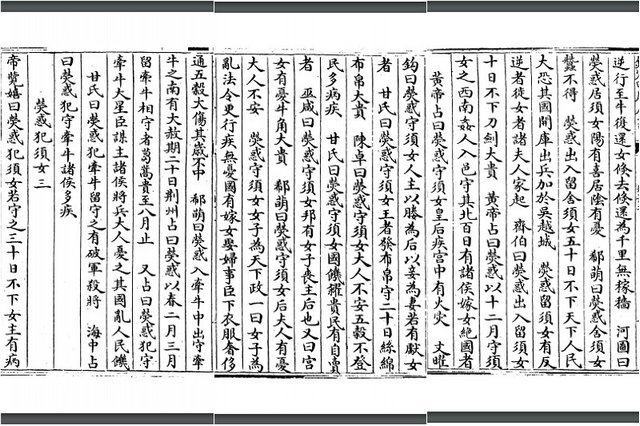 逆行至牛復還女候去候還為千里無稼穡　河圖曰
熒惑居須女陽有喜居陰有憂　郗萌曰熒惑舍須女
蠶不得　熒惑出入留舍須女五十日不下天下人民
大恐其國開庫出兵加於吳越城　熒惑留須女有反
逆者從女者諸夫人家起　齊伯曰熒惑出入留須女
十日不下刀劍大貴　黃帝占曰熒惑以十二月守須
女之西南姦人入邑守其北百日有諸侯嫁女絕國者
黃帝占曰熒惑守須女皇后疾宮中有火灾　文曜
鈎曰熒惑守須女人主以媵為后以妾為妻若有獻女
者　甘氏曰熒惑守須女王者發布帛守二十日絲綿
布帛大貴　陳卓曰熒惑守須女大人不安五穀不登
民多病疾　甘氏曰熒惑守須女國饑糴貴民有自賣
者　巫咸曰熒惑守須女邦有女子喪主后也人曰宮
女有憂牛角大貴　郗萌曰熒惑守須女后大人有憂
大人不安　熒惑守須女女子為天下政一曰女子為
亂法令更行疾無憂國有嫁女娶婦事臣下衣服奢侈
通五穀大傷其歲不中　郗萌曰熒惑入牽牛中出守牽
牛之南有大赦期二十日荆州占曰熒惑以春二月三月
留牽牛相守者芻藁貴至八月止　又占曰熒惑犯守
牽牛大星臣謀主諸侯將兵大人憂之其國亂人民饑
甘氏曰熒惑犯牽牛留守之有破軍殺將　海中占
曰熒惑犯守牽牛諸侯多疾
熒惑犯須女三
帝覽嬉曰熒惑犯須女若守之三十日不下女主有病